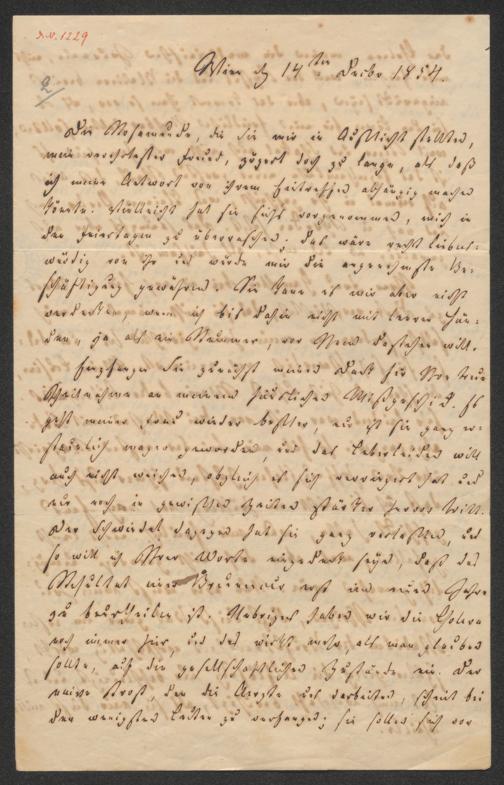 I.N. 1229
2
Wien d. 14ten Decbr 1854.
Die Rosamunde, die Sie mir in Aussicht stellten,
mein verehrtester Freund, zögert doch zu lange, als daß
ich meine Antwort von ihrem Eintreffen abhängig machen
könnte. Vielleicht hat sie sichs vorgenommen, mich in
den Feiertagen zu überraschen; das wäre recht liebens-
würdig von ihr und würde mir die angenehmste Be-
schäftigung gewähren. Sie kann es mir aber nicht
verdenken, wenn ich bis dahin nicht mit leeren Hän-
den, ja als ein Stummer, vor Ihnen dastehen will.
Empfangen Sie zunächst meinen Dank für Ihre treue
Theilnahme an meinem häuslichen Mißgeschick. Es
geht meiner Frau wieder besser, nur ist sie ganz er-
staunlich mager geworden, und das Leberleiden will
auch nicht weichen, obgleich es sich verringert hat und
nur noch in gewissen Zeiten stärker hervor tritt.
Der Schwindel dagegen hat sie ganz verlassen, und
so will ich Ihrer Worte eingedenk seyn, daß das
Resultat einer Brunnencur erst im neuen Jahre
zu beurtheilen ist. Uebrigens haben wir die Cholera
noch immer hier, und das wirkt mehr, als man glauben
sollte, auf die gesellschaftlichen Zustände ein. Der
naive Trost, den die Aerzte uns darbieten, scheint bei
den wenigsten Leuten zu verfangen; sie sollen sich vor